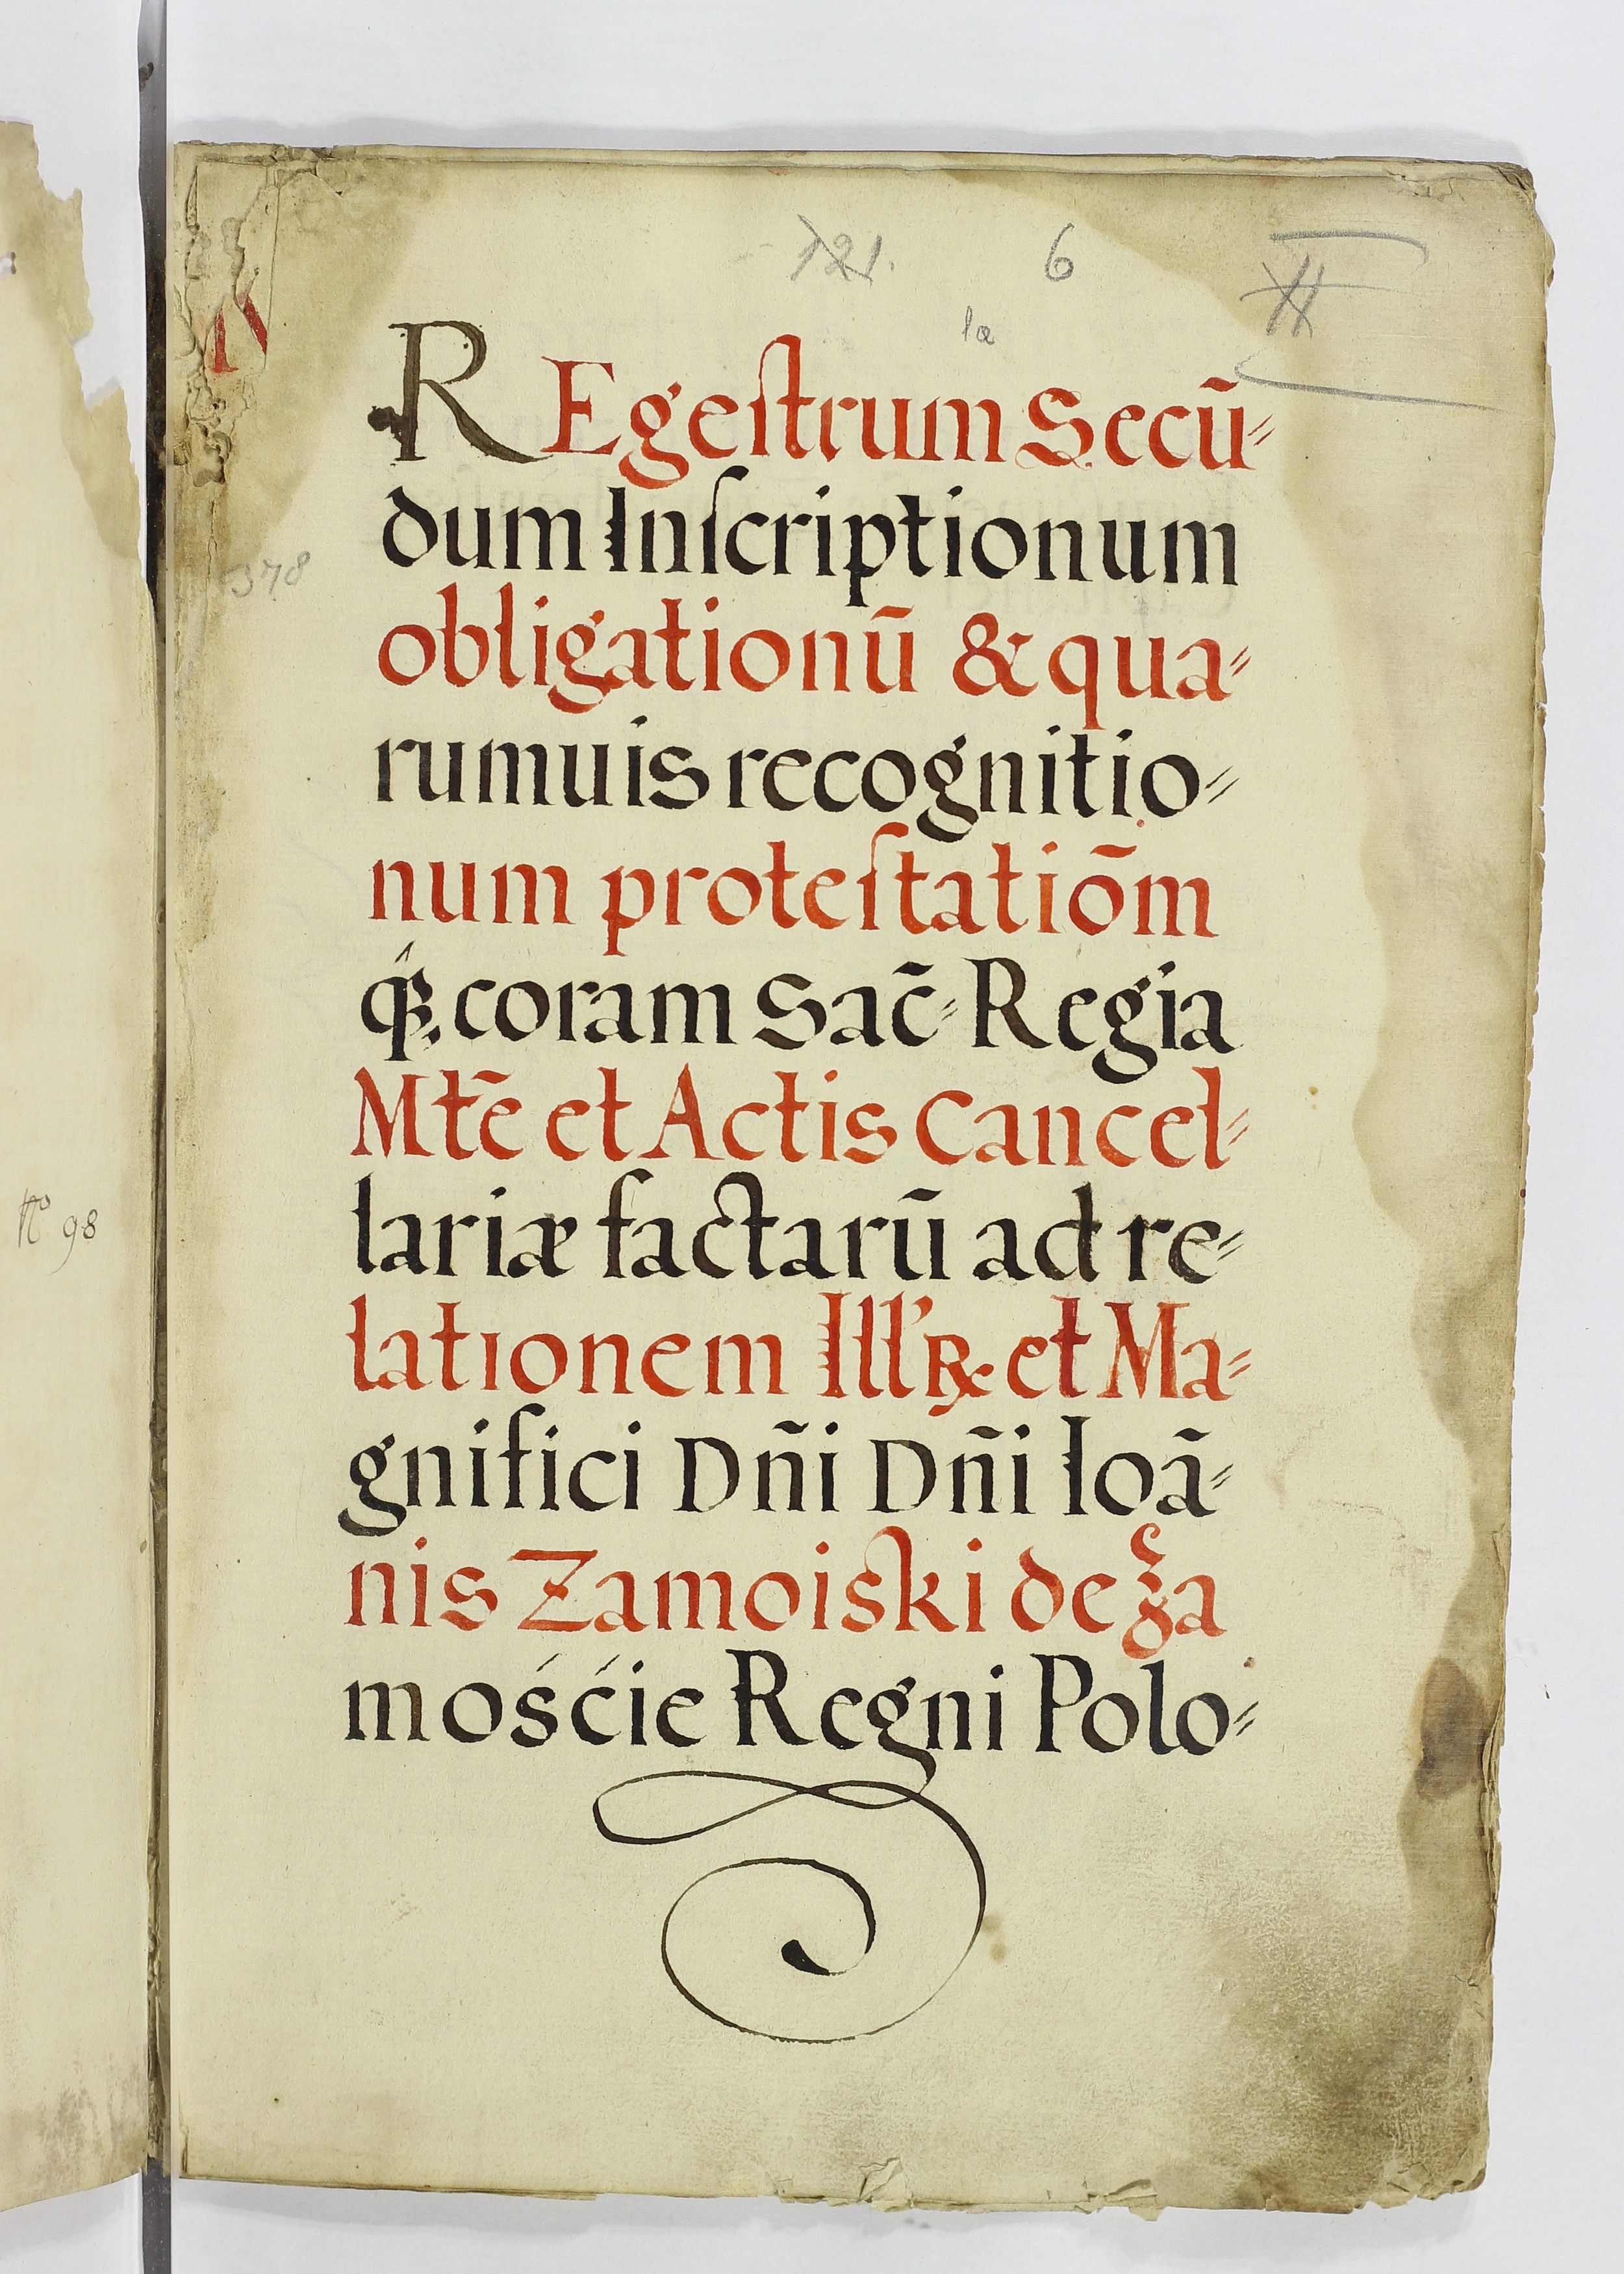 121. 6 II
la
REgeſtrum Secū=
dum Inſcriptionum
378
obligationū & qua=
rumuis recognitio=
num proteſtatiōm
coram Sac̃= Regia
Mtẽ et Actis Cancel=
lariæ factarū ad re=
Nº 98
lationem Ill'℞. et Ma=
gnifici Dñi Dñi Ioã=
nis Zamoiſki de Za
mośćie Regni Polo=